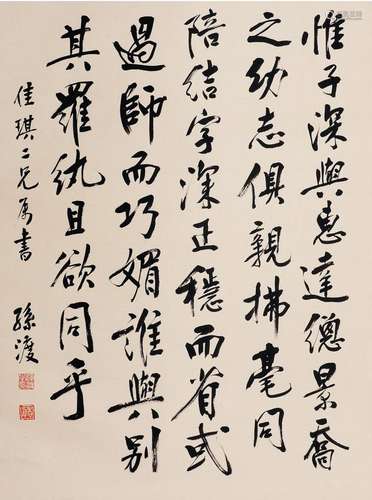 惟子深與惠達總景喬
之幼志俱親拂毫同
陪結字深正穩而省或
過師而巧媚誰與別
其羅紈且欲同乎
佳琪二兄屬書
孫渡